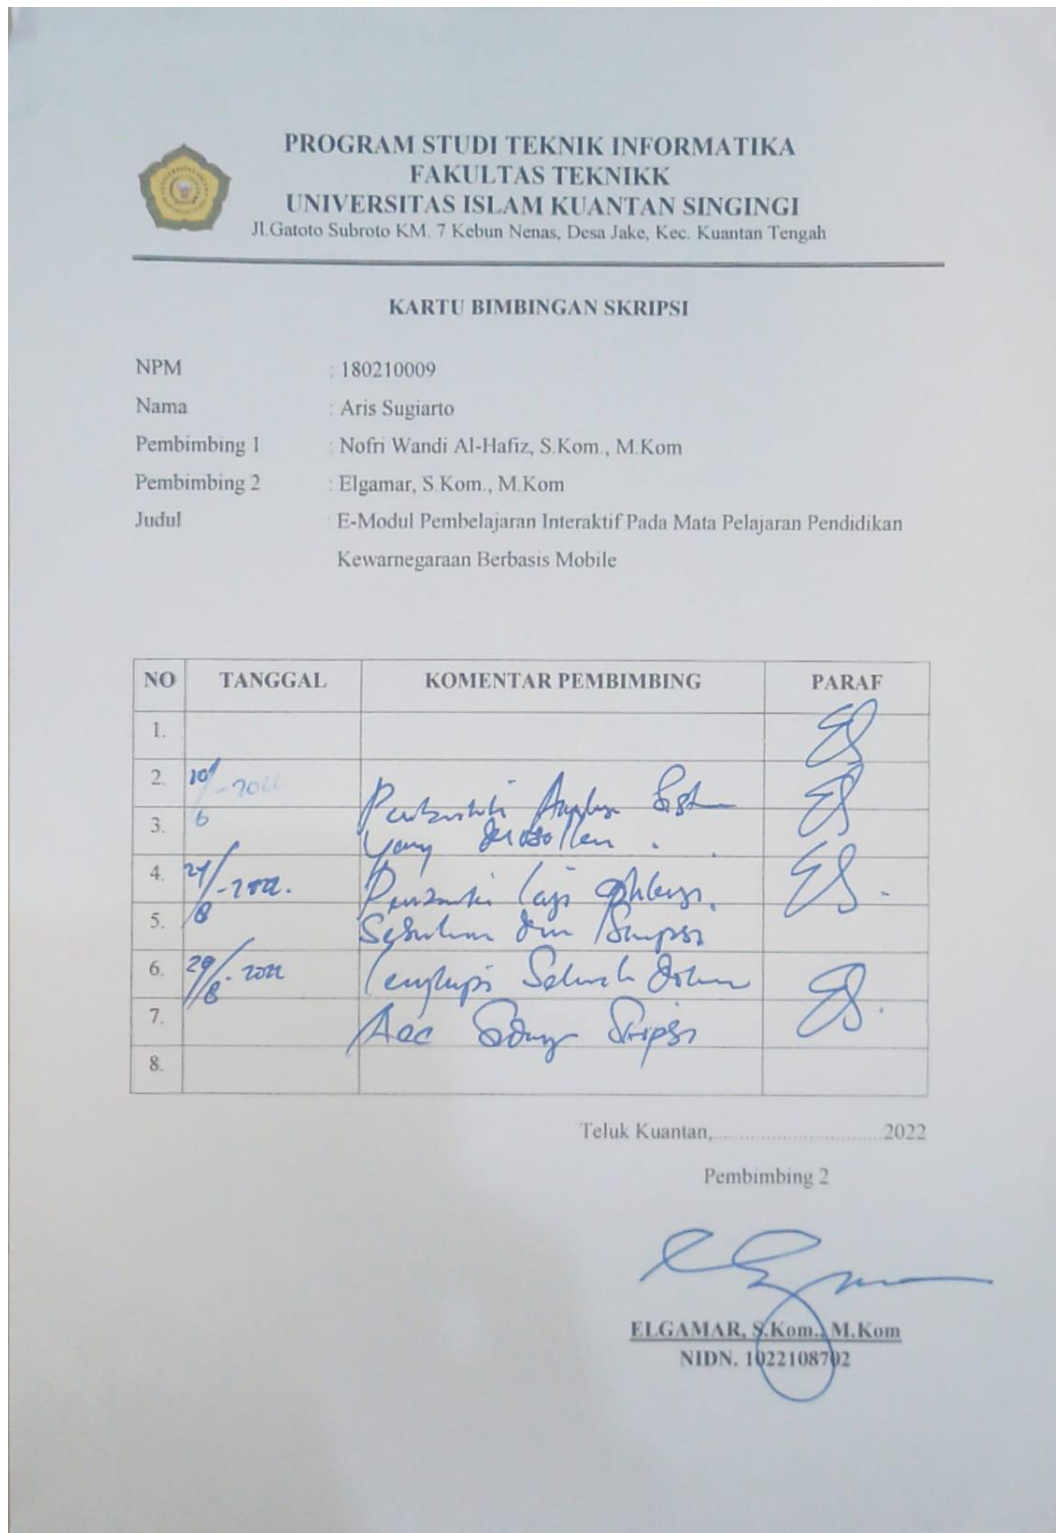 PROGRAM STUDI TEKNIK INFORMATIKA
FAKULTAS TEKNIKK
UNIVERSITAS ISLAM KUANTAN SINGINGI
Jl.Gatoto Subroto KM. 7 Kebun Nenas, Desa Jake, Kec. Kuantan Tengah
KARTU BIMBINGAN SKRIPSI
NPM : 180210009
Nama : Aris Sugiarto
Pembimbing 1 : Nofri Wandi Al-Hafiz, S.Kom., M.Kom
Pembimbing 2 : Elgamar, S.Kom., M.Kom
Judul : E-Modul Pembelajaran Interaktif Pada Mata Pelajaran Pendidikan
Kewarnegaraan Berbasis Mobile
NO TANGGAL KOMENTAR PEMBIMBING PARAF
1.
2. 10/6-2022
3. yang
4.
5. dan
6. 29/8-2022 Lengkapi
7. Acc Sidang Skripsi
8.
Teluk Kuantan,..............................2022
Pembimbing 2
ELGAMAR, S.Kom., M.Kom
NIDN. 1022108702